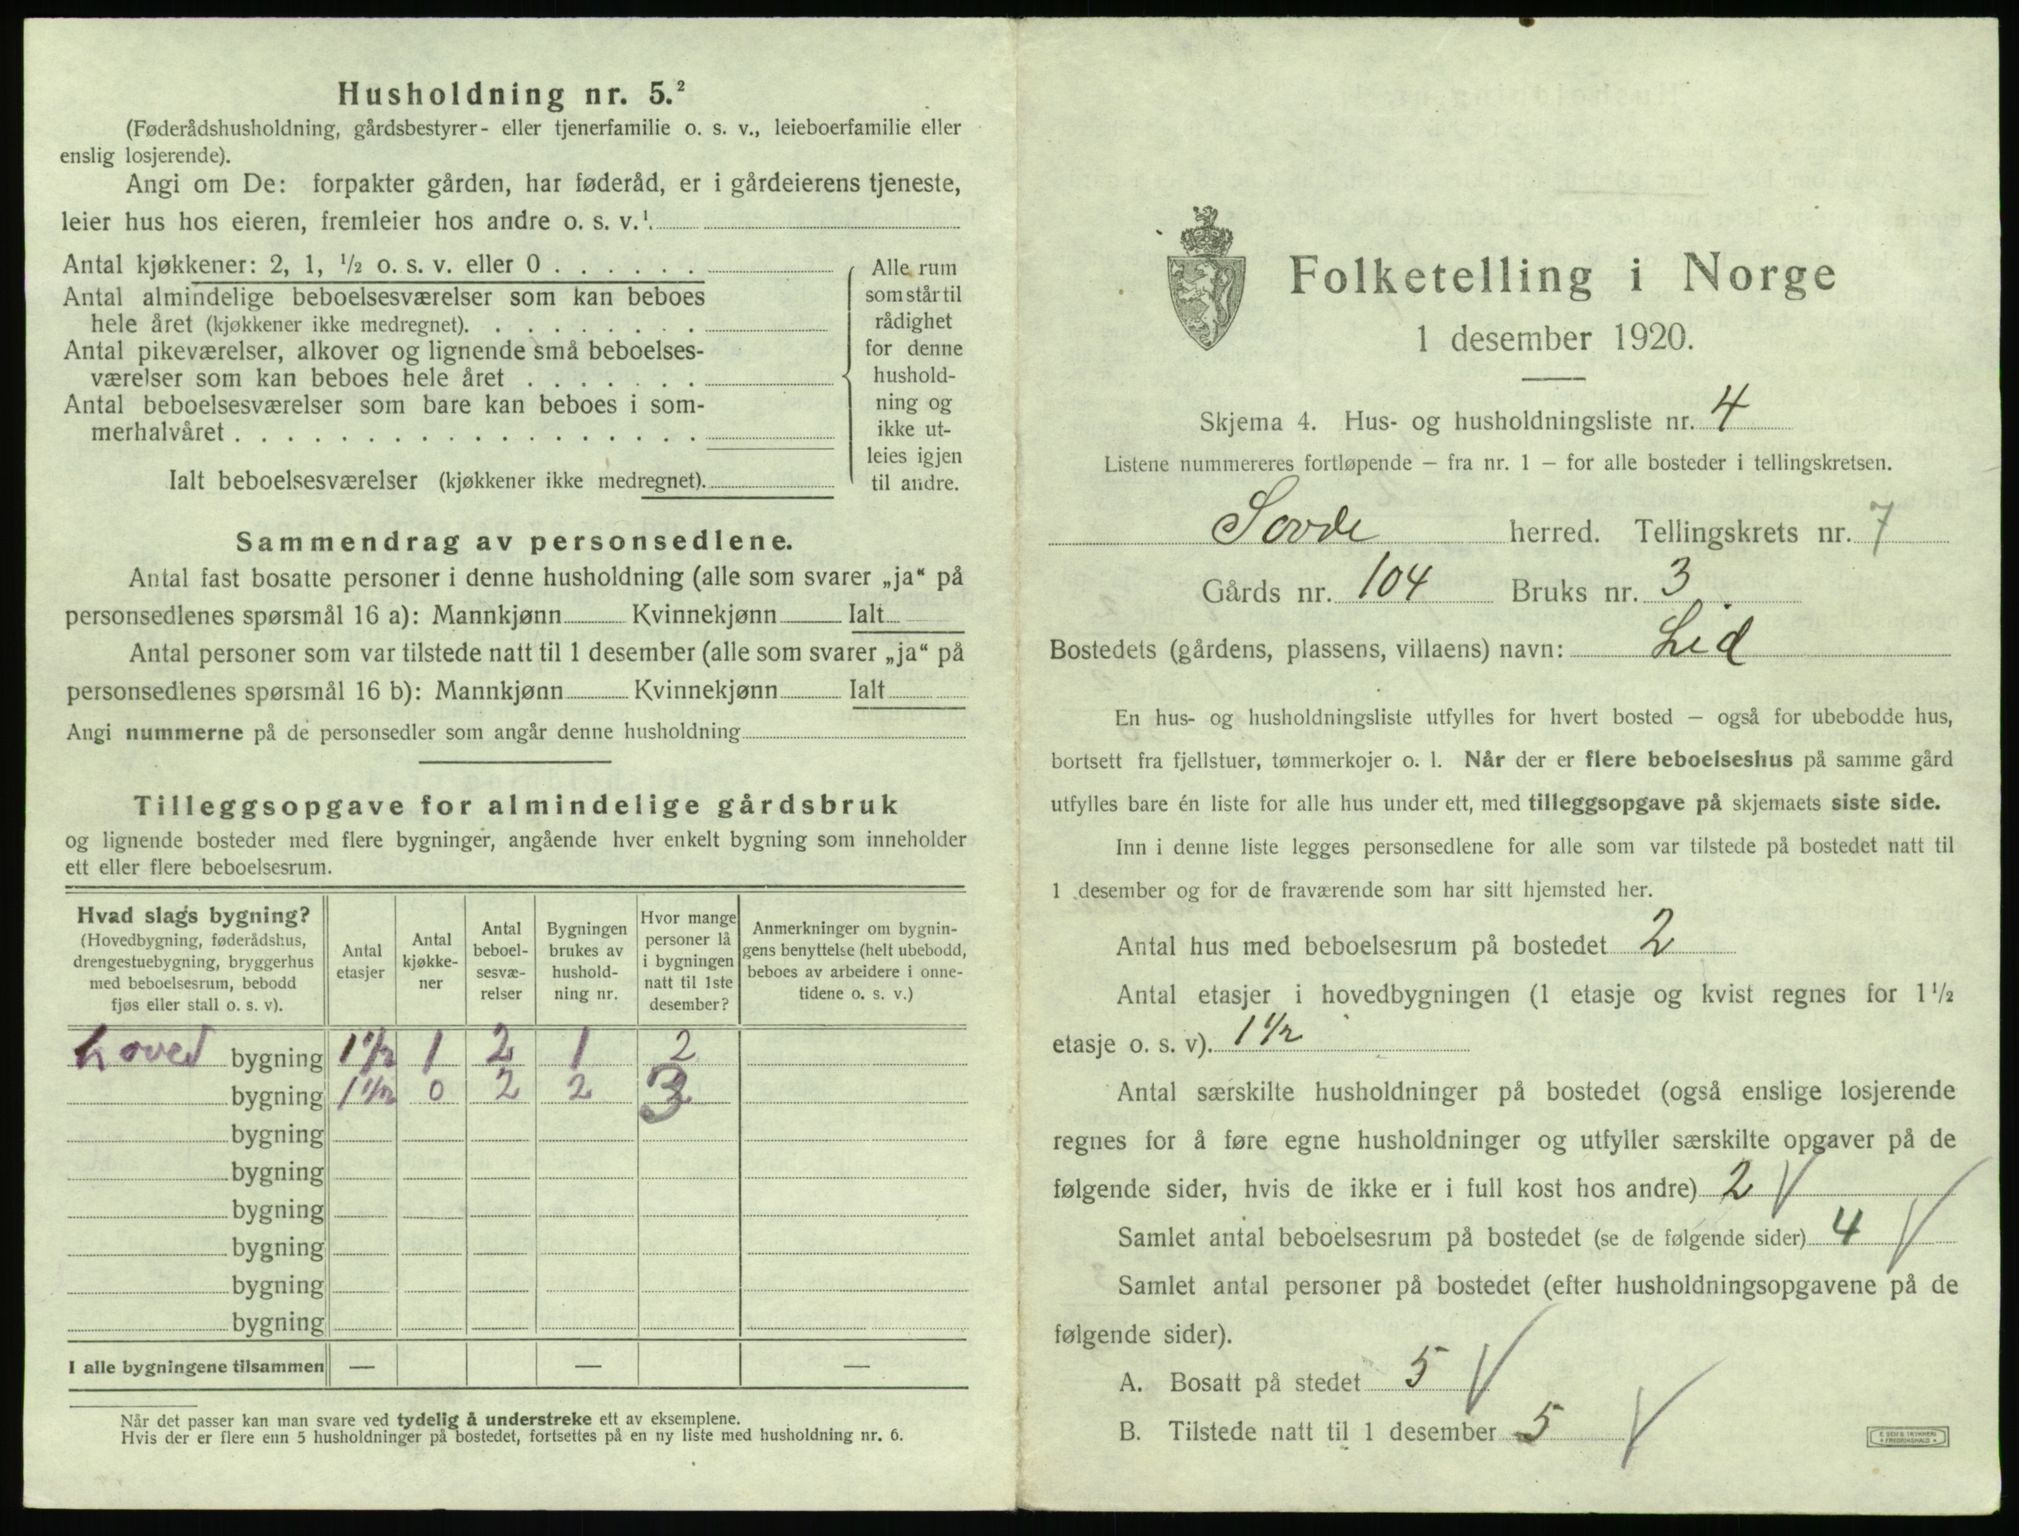 Husholdning nr. 5.²
(Føderådshusholdning, gårdsbestyrer- eller tjenerfamilie o. s. v., leieboerfamilie eller
enslig losjerende).
Angi om De: forpakter gården, har føderåd, er i gårdeierens tjeneste,
leier hus hos eieren, fremleier hos andre o. s. v.¹.
Antal kjøkkener: 2, 1, ½ o. s. v. eller 0 . . . . . .
Antal almindelige beboelsesværelser som kan beboes
hele året (kjøkkener ikke medregnet). . . . . . . . .
Antal pikeværelser, alkover og lignende små beboelses-
værelser som kan beboes hele året . . . . . . .
Antal beboelsesværelser som bare kan beboes i som-
merhalvåret . . . . . . . . . . . . . . . . . .
Ialt beboelsesværelser (kjøkkener ikke medregnet).
Alle rum
som står til
rådighet
for denne
hushold-
ning og
ikke ut-
leies igjen
til andre.
Sammendrag av personsedlene.
Antal fast bosatte personer i denne husholdning (alle som svarer „ja“ på
personsedlenes spørsmål 16 a): Mannkjønn Kvinnekjønn Ialt
Antal personer som var tilstede natt til 1 desember (alle som svarer „ja“ på
personsedlenes spørsmål 16 b): Mannkjønn Kvinnekjønn Ialt
Angi nummerne på de personsedler som angår denne husholdning
Tilleggsopgave for almindelige gårdsbruk
og lignende bosteder med flere bygninger, angående hver enkelt bygning som inneholder
ett eller flere beboelsesrum.
Hvad slags bygning?
(Hovedbygning, føderådshus,
drengestuebygning, bryggerhus
med beboelsesrum, bebodd
fjøs eller stall o. s. v).
Antal
etasjer
Antal
kjøkke-
ner
Antal
beboel-
sesvæ-
relser
Bygningen
brukes av
hushold-
ning nr.
Hvor mange
personer lå
i bygningen
natt til 1ste
desember?
Anmerkninger om bygnin-
gens benyttelse (helt ubebodd,
beboes av arbeidere i onne-
tidene o. s. v.)
hoved bygning 1 1/2 1 2 1 2
bygning 1 1/2 0 2 2 3
bygning
bygning
bygning
bygning
bygning
bygning
I alle bygningene tilsammen — — —
Når det passer kan man svare ved tydelig å understreke ett av eksemplene.
Hvis der er flere enn 5 husholdninger på bostedet, fortsettes på en ny liste med husholdning nr. 6.
Folketelling i Norge
1 desember 1920.
Skjema 4. Hus- og husholdningsliste nr. 4
Listene nummereres fortløpende – fra nr. 1 – for alle bosteder i tellingskretsen.
Sovde herred. Tellingskrets nr. 7
Gårds nr. 104 Bruks nr. 3
Bostedets (gårdens, plassens, villaens) navn: Lid
En hus- og husholdningsliste utfylles for hvert bosted – også for ubebodde hus,
bortsett fra fjellstuer, tømmerkojer o. l. Når der er flere beboelseshus på samme gård
utfylles bare én liste for alle hus under ett, med tilleggsopgave på skjemaets siste side.
Inn i denne liste legges personsedlene for alle som var tilstede på bostedet natt til
1 desember og for de fraværende som har sitt hjemsted her.
Antal hus med beboelsesrum på bostedet 2
Antal etasjer i hovedbygningen (1 etasje og kvist regnes for 1½
etasje o. s. v). 1 1/2
Antal særskilte husholdninger på bostedet (også enslige losjerende
regnes for å føre egne husholdninger og utfyller særskilte opgaver på de
følgende sider, hvis de ikke er i full kost hos andre) 2 √
Samlet antal beboelsesrum på bostedet (se de følgende sider) 4 √
Samlet antal personer på bostedet (efter husholdningsopgavene på de
følgende sider).
A. Bosatt på stedet 5 √
B. Tilstede natt til 1 desember 5 √